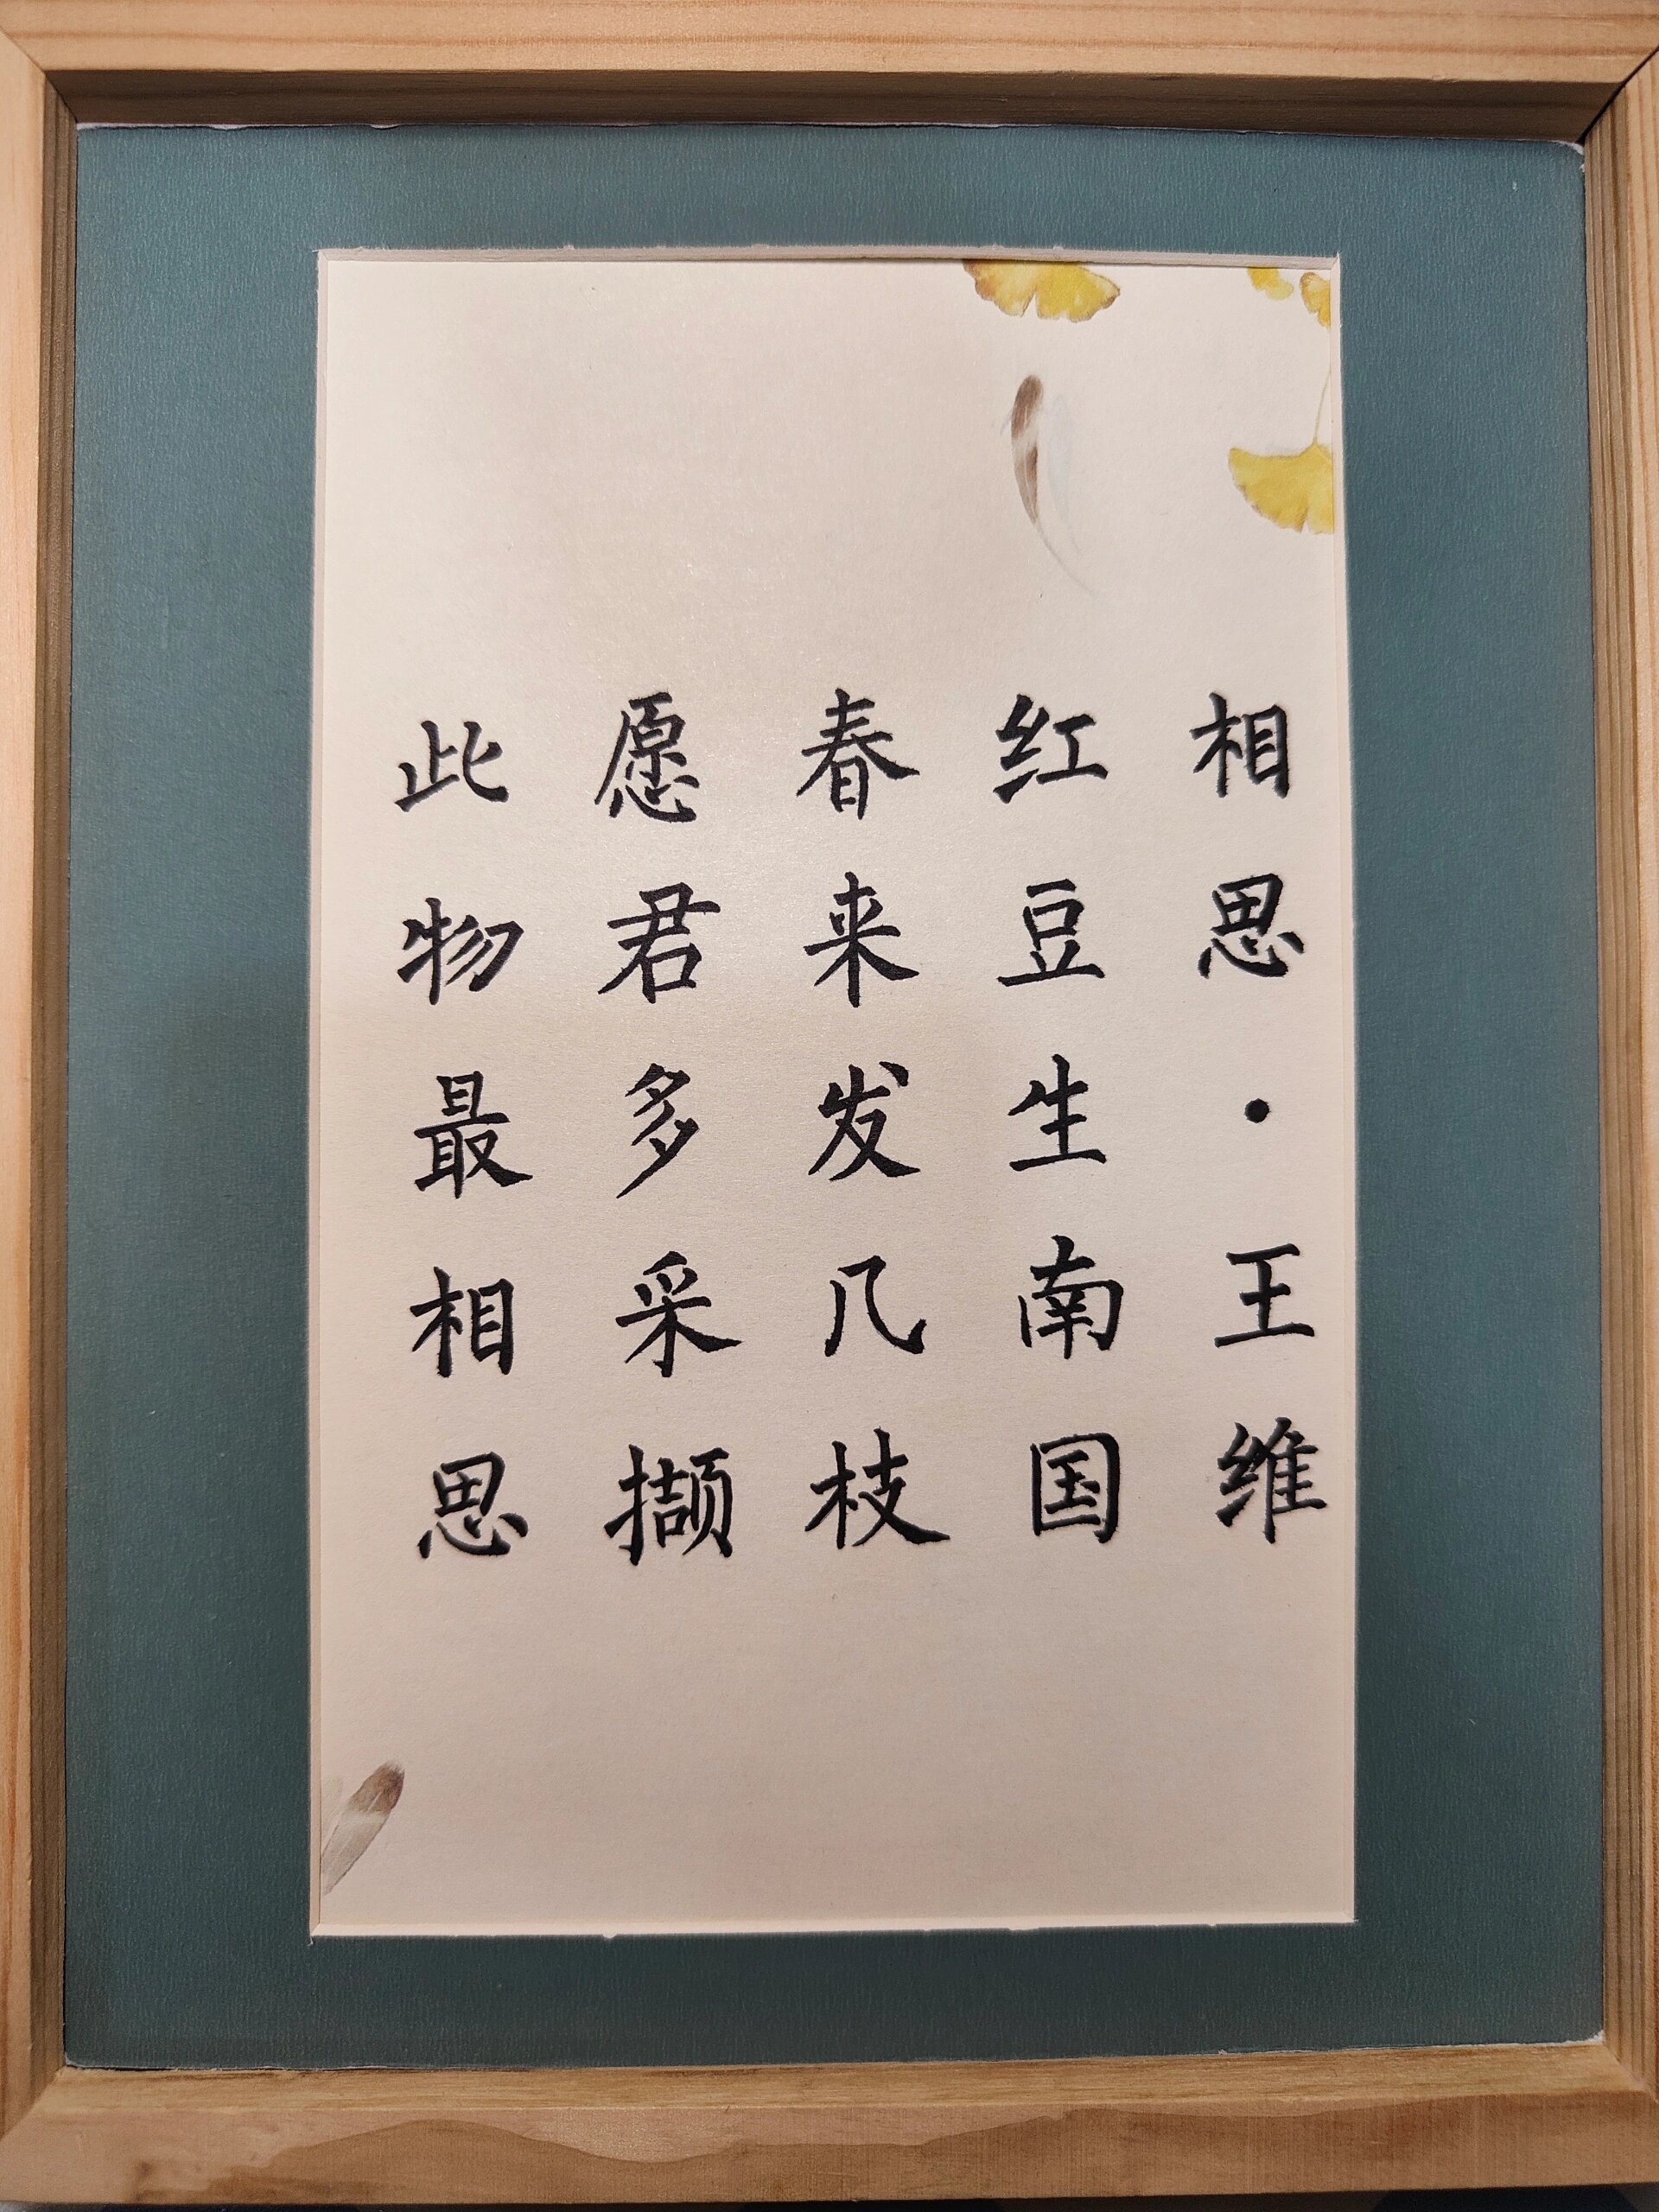 相思·王维
红豆生南国
春来发几枝
愿君多采撷
此物最相思